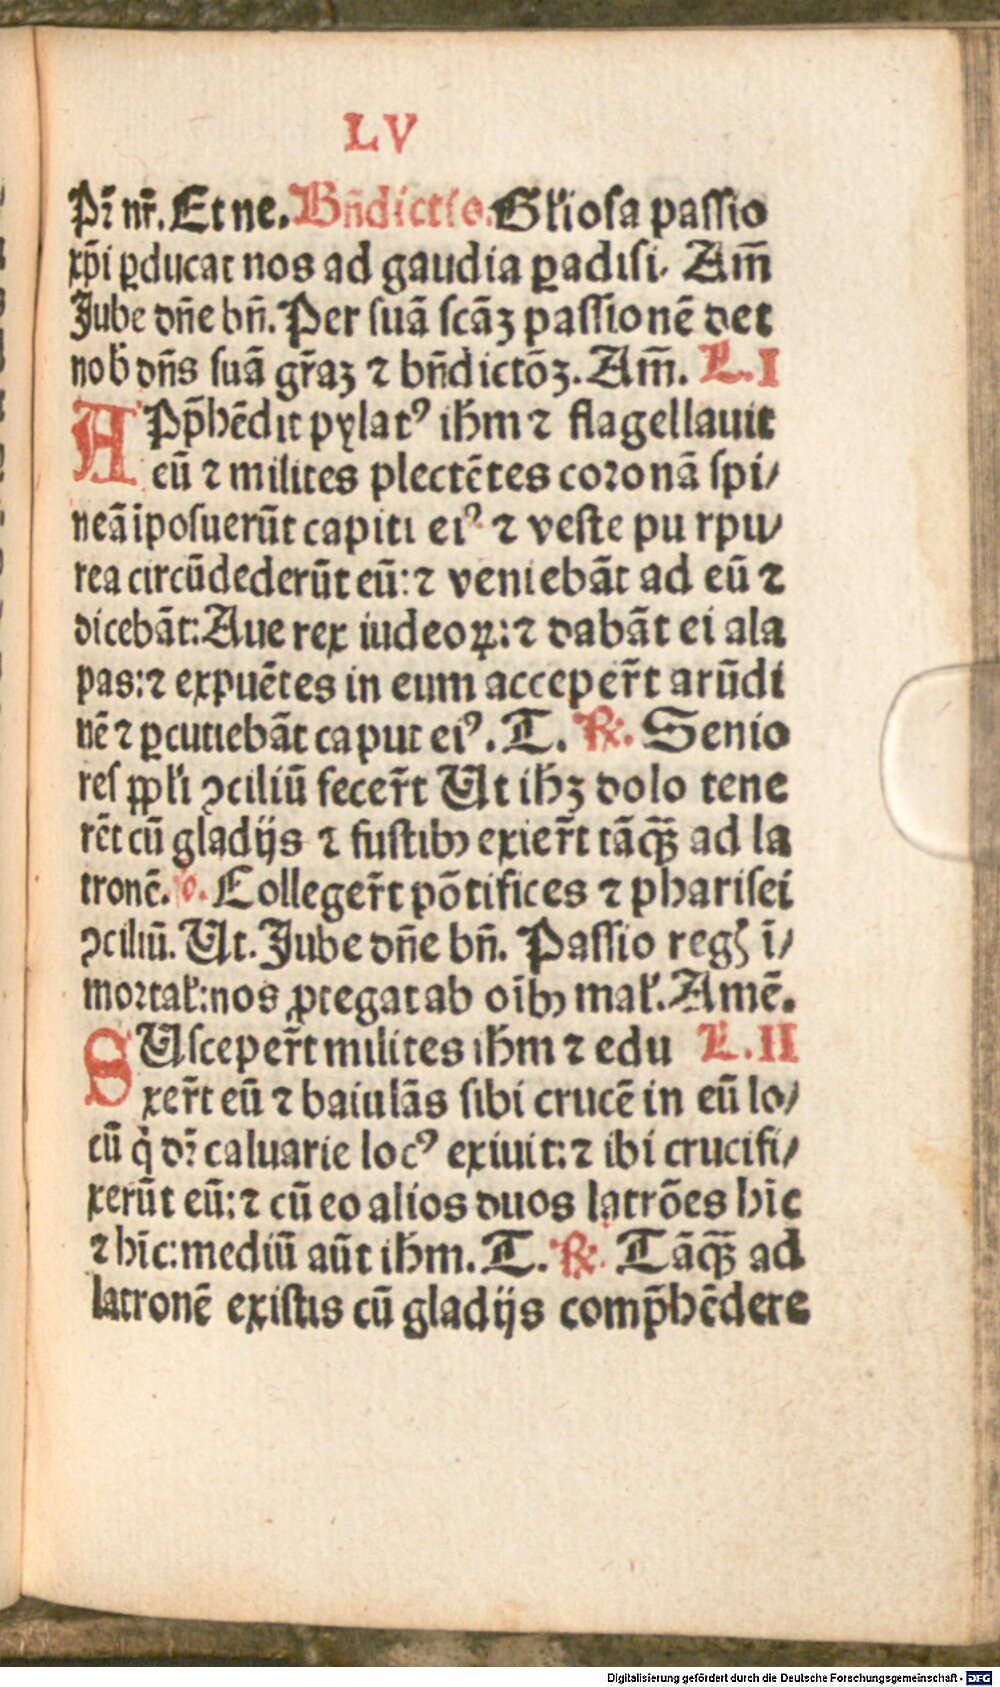 LV
Pr̄ nr̄. Et ne. Bn̄dictio. Gl̓iosa passio
xp̄i ꝑducat nos ad gaudia ꝑadisi. Am̄
Jube dn̄e bn̄. Per suā scāꝫ passionē det
nob̓ dn̄s suā gr̄aꝫ ⁊ bn̄dictōꝫ. Am̄. L. I
APp̄hēdit pylatꝰ ih̄m ⁊ flagellauit
eū ⁊ milites plectētes coronā spi/
neā īposuerūt capiti eiꝰ ⁊ veste pu rpu/
rea circūdederūt eū: ⁊ veniebāt ad eū ⁊
dicebāt: Aue rex iudeoꝝ: ⁊ dabāt ei ala
pas: ⁊ expuētes in eum acceper̄t arūdi
nē ⁊ ꝑcutiebāt caput eiꝰ. T. ℟. Senio
res ppl̓i ꝯciliū fecer̄t Ut ih̄ꝫ dolo tene
rēt cū gladijs ⁊ fustibꝰ exier̄t tāq̄ꝫ ad la
tronē. Colleger̄t pōtifices ⁊ pharisei
ꝯciliū. Ut. Jube dn̄e bn̄. Passio regꝭ ī/
mortal̓: nos ꝓtegat ab oībꝰ mal̓. Amē.
SUsceper̄t milites ih̄m ⁊ edu L. II
xer̄t eū ⁊ baiulās sibi crucē in eū lo/
cū q̇ dr̄ caluarie locꝰ exiuit: ⁊ ibi crucifi/
xerūt eū: ⁊ cū eo alios duos latrōes hīc
⁊ hīc: mediū aūt ih̄m. T. ℟. Tāq̄ꝫ ad
latronē existis cū gladijs comp̄hēdere
Digitalisierung gefördert durch die Deutsche Forschungsgemeinschaft - DFG